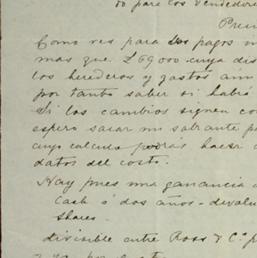 do para los Vendedor
Prem
Como ves para los pagos n
mas que £69000 cuya dis
los herederos y gastos aun
por tanto saber si habrá
Si los cambios siguen co
espero sacar un sobrante p
cuyo calculo podrás hacer c
datos del costo.
Hay pues una ganancia d
Cash á dos años - devolu
Shares.
divisible entre Ross & Co. p